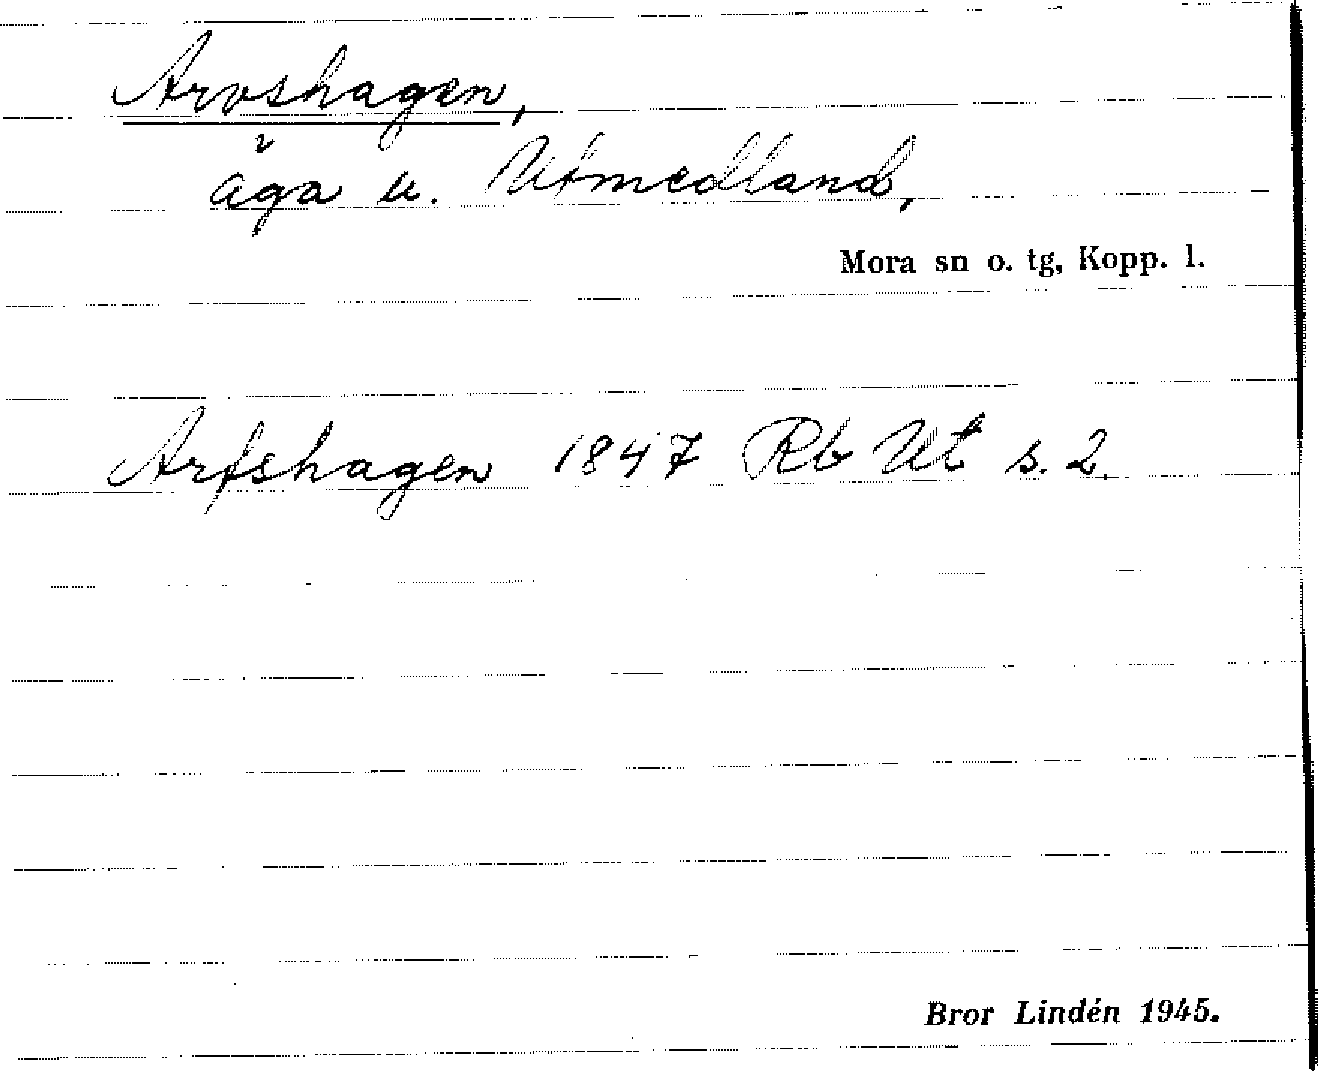 Arvshagen,
äga u. Utmedland,
Mora sn o. tg, Kopp. l.
Arfshagen 1847 Rb Ut s. 2.
Bror Lindén 1945.